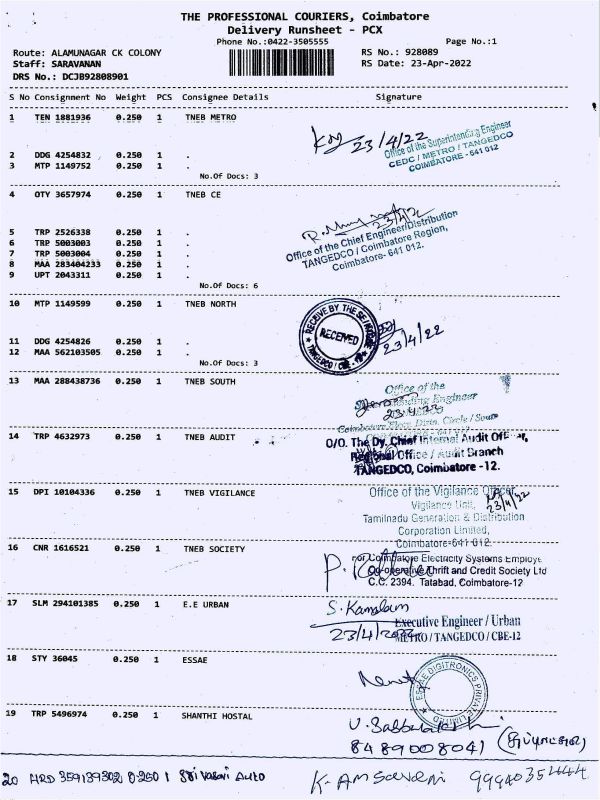 THE PROFESSIONAL COURIERS, Coimbatore
Delivery Runsheet - PCX
Phone No.:0422-3505555 Page No.:1
Route: ALAMUNAGAR CK COLONY RS No.: 928089
Staff: SARAVANAN RS Date: 23-Apr-2022
DRS No.: DCJB92808901
S No Consignment No Weight PCS Consignee Details Signature
1 TEN 1881936 0.250 1 TNEB METRO
23/4/22
Office of the Superintending Engineer
CEDC / METRO / TANGEDCO
COIMBATORE - 641 012
2 DDG 4254832 0.250 1 .
3 MTP 1149752 0.250 1 .
No.Of Docs: 3
4 OTY 3657974 0.250 1 TNEB CE
Office of the Chief Engineer/Distribution
TANGEDCO / Coimbatore Region,
Coimbatore- 641 012.
5 TRP 2526338 0.250 1 .
6 TRP 5003003 0.250 1 .
7 TRP 5003004 0.250 1 .
8 MAA 283404233 0.250 1 .
9 UPT 2043311 0.250 1 .
No.Of Docs: 6
10 MTP 1149599 0.250 1 TNEB NORTH
RECEIVED
TANGEDCO / CBE
23/4/22
11 DDG 4254826 0.250 1 .
12 MAA 562103505 0.250 1 .
No.Of Docs: 3
13 MAA 288438736 0.250 1 TNEB SOUTH
Office of the
Engineer
23.4.22
Circle / South
14 TRP 4632973 0.250 1 TNEB AUDIT
O/O. The Dy. Chief Internal Audit
Regional Office / Audit Branch
TANGEDCO, Coimbatore -12.
15 DPI 10104336 0.250 1 TNEB VIGILANCE
Office of the Vigilance Officer,
Vigilance Unit,
23/4/22
Tamilnadu Generation & Distribution
Corporation Limited,
Coimbatore-641 012.
16 CNR 1616521 0.250 1 TNEB SOCIETY
For Coimbatore Electricity Systems Employe
Co-operative Thrift and Credit Society Ltd
C.C. 2394. Tatabad, Coimbatore-12
17 SLM 294101385 0.250 1 E.E URBAN
S. Kamalam
23/4/2022
Executive Engineer / Urban
METRO / TANGEDCO / CBE-12
18 STY 36045 0.250 1 ESSAE
ESSAE DIGITRONICS PRIVATE LIMITED
19 TRP 5496974 0.250 1 SHANTHI HOSTAL
8489008041
20 HRD 359139302 0.250 1 Sri Vasavi Auto